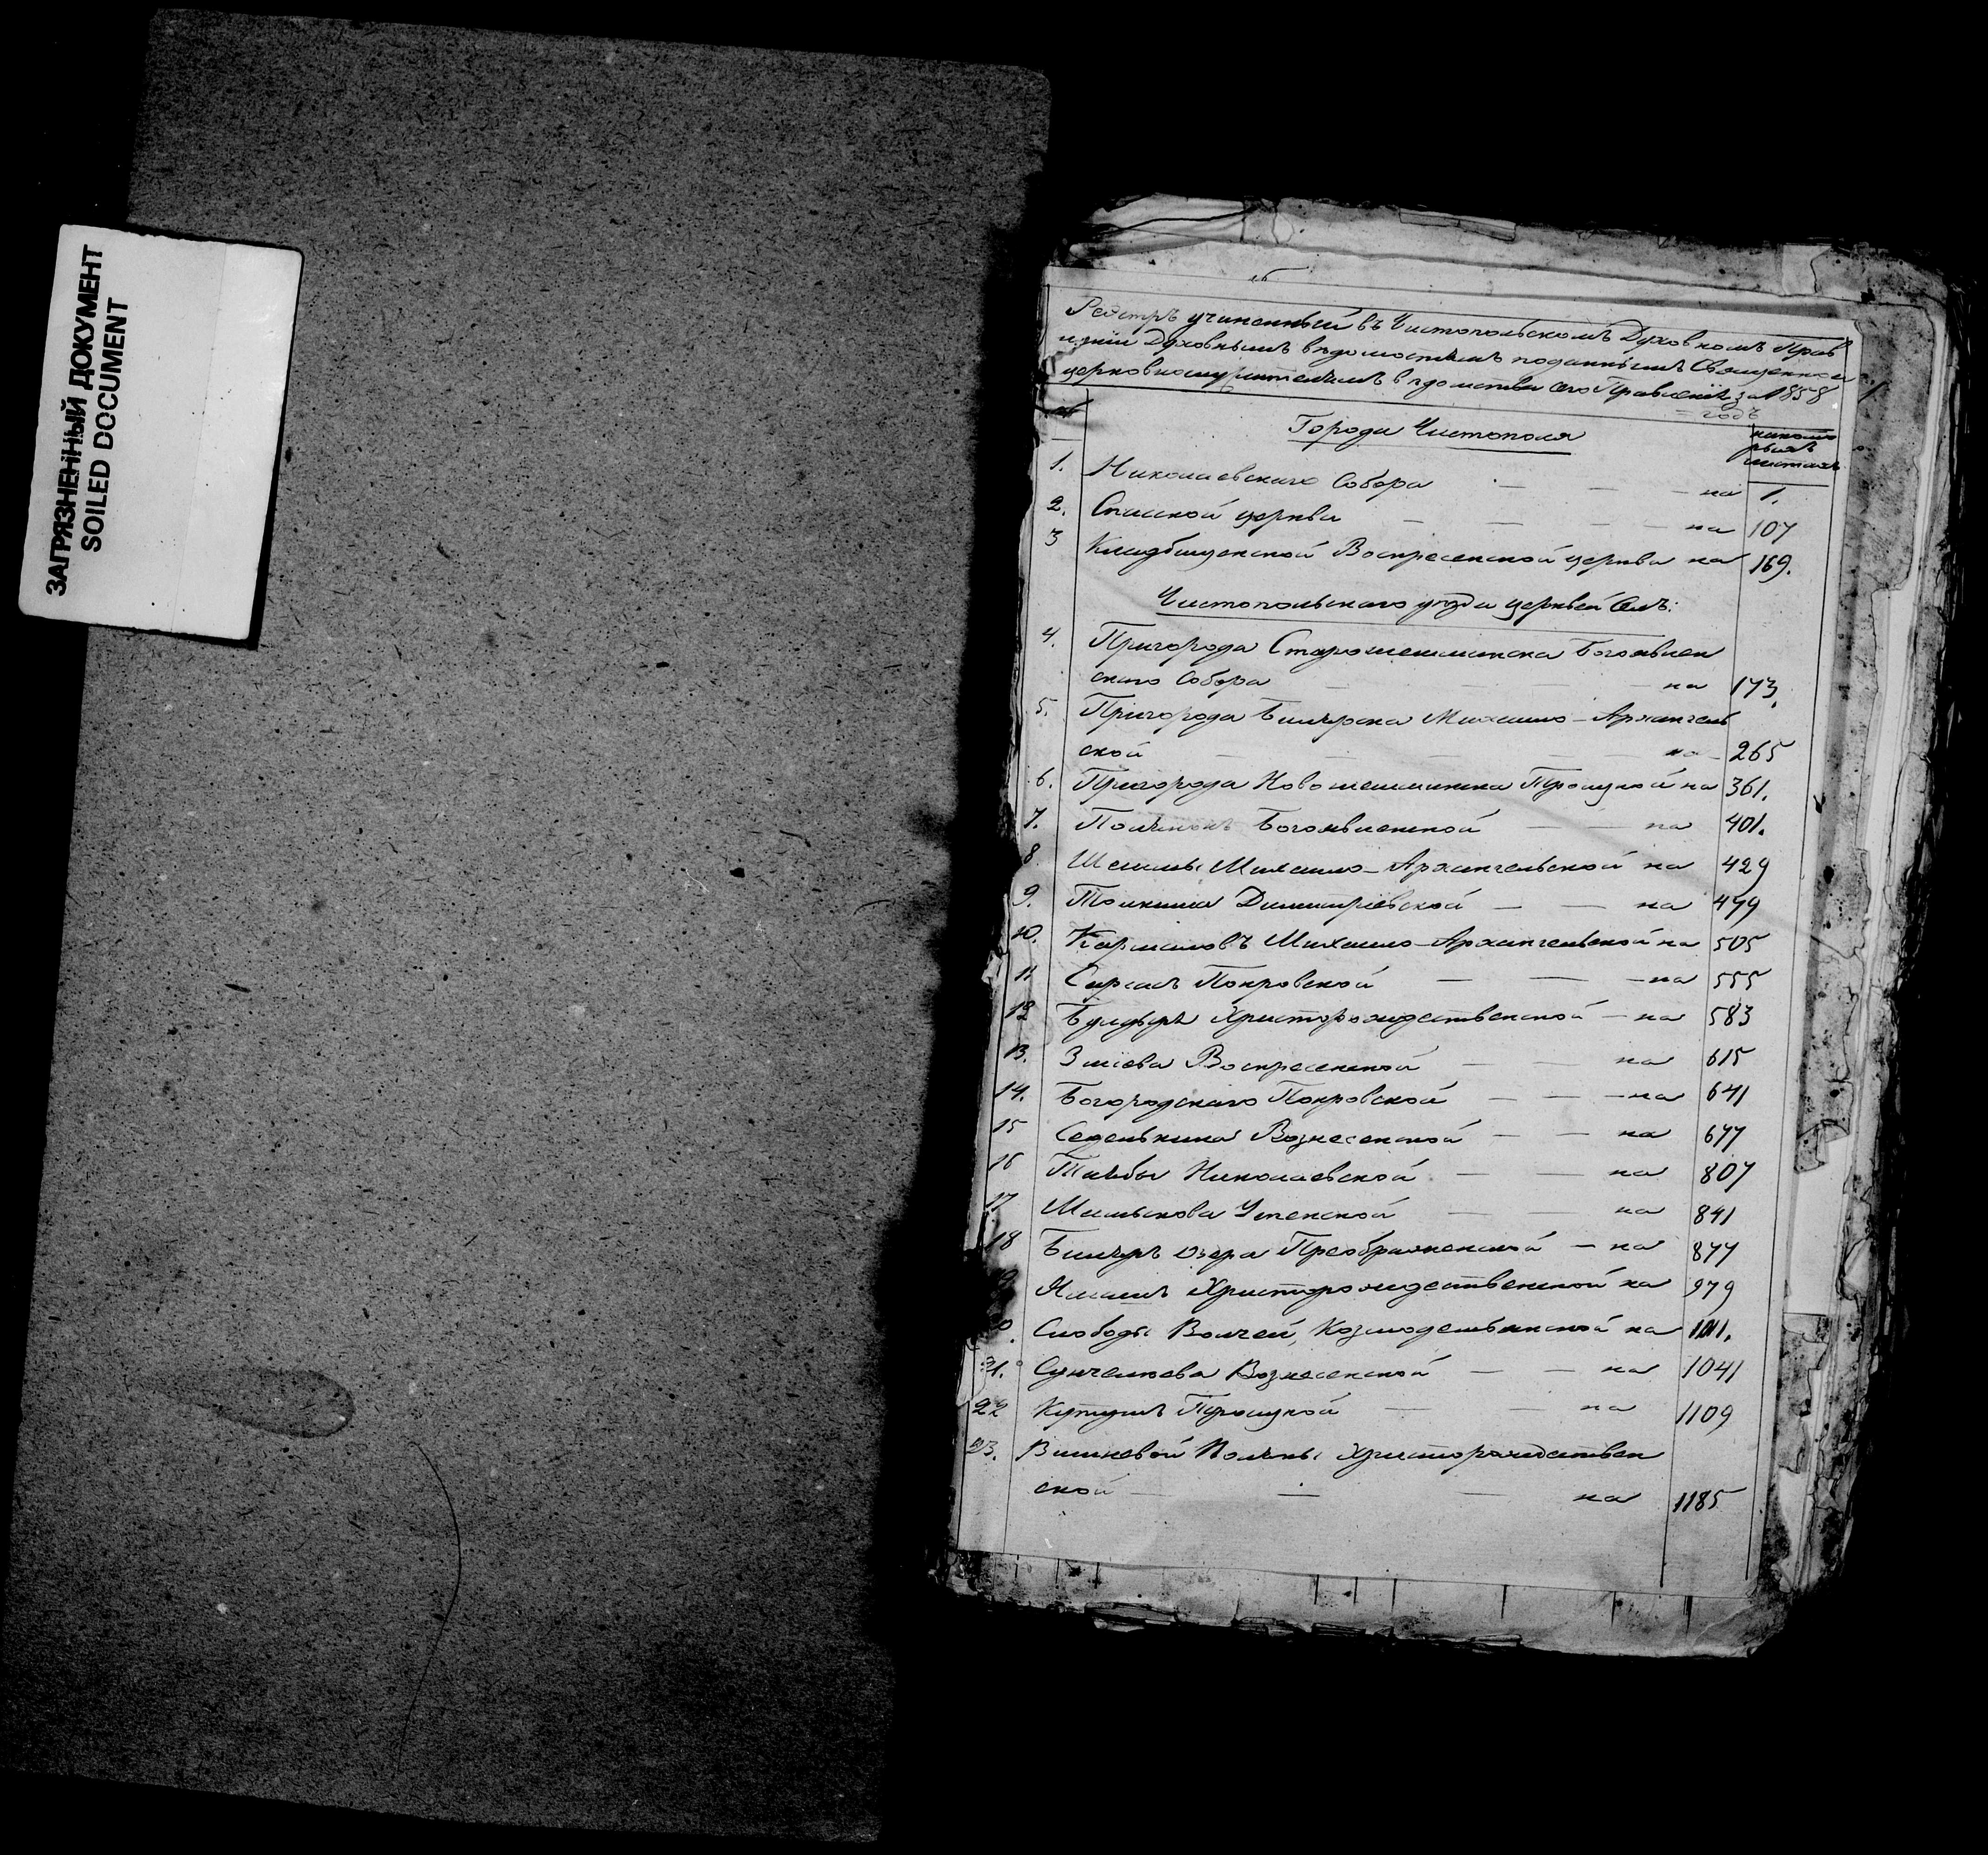 ЗАГРЯЗНЕННЫЙ ДОКУМЕНТ
SOILED DOCUMENT
Реэстръ учиненный въ Чистопольскомъ Духовномъ Прав
леніи Духовнымъ вѣдомостямъ поданнымъ Священно и
церковнослужителями вѣдомства сего Правленія за 1858
годъ
Города Чистополя
на коихъ листахъ
1. Николаевскаго Собора — — — на 1.
2. Спасской церкви — — — — на 107
3 Кладбищенской Воскресенской церкви на 169.
Чистопольскаго уѣзда церквей Селъ:
4. Пригорода Старошешминска Богоявлен
скаго Собора — — — на 173.
5. Пригорода Билярска Михаило-Архангель
ской — — — — на 265
6. Пригорода Новошешминска Троицкой на 361.
7. Полянокъ Богоявленской — — на 401.
8. Шешмы Михаило-Архангельской на 429
9. Толкиша Димитріевской — — на 499
10. Кармаловъ Михаило-Архангельской на 505
11 Сарсасъ Покровской — — — на 555
12 Булдыря Христорождественской — на 583
13. Зміева Воскресенской — — на 615
14. Богородскаго Покровской — — — на 641
15 Седелькина Вознесенской — — на 677
16 Таябы Николаевской — — на 807
17 Мамыкова Успенской — — на 841
18 Биляръ озера Преображенской — на 877
Ямашъ Христорождественской на 979
Слободы Волчей, Козмодемьянской на 1011.
21. Сунчелеева Вознесенской — — на 1041
22 Кутушъ Троицкой — — на 1109
23. Вишневой Поляны Христорождествен
ской — — — на 1185